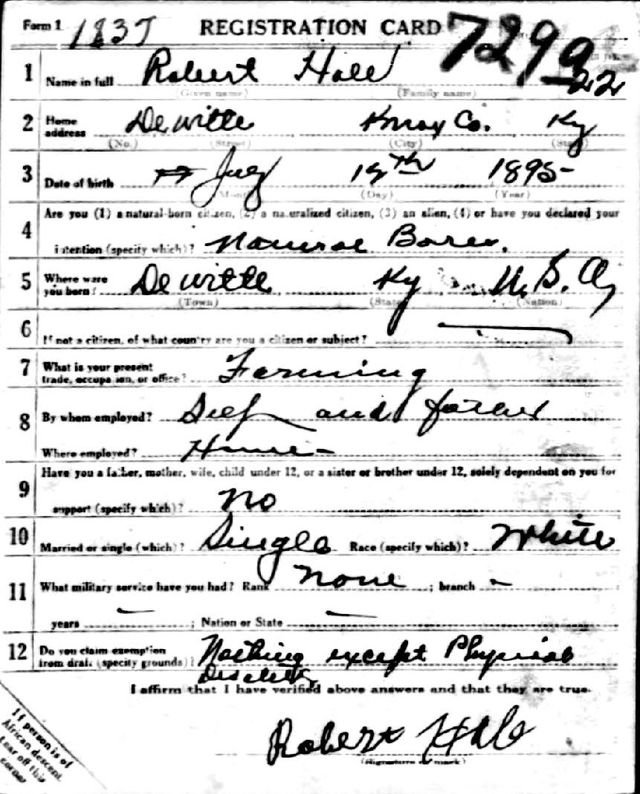 Form 1 1837 REGISTRATION CARD 7299
22
1 Name in full Robert Hale
(Given name) (Family name)
2 Home address Dewitte Knox Co. Ky
(No.) (Street) (City) (State)
3 Date of birth July 15th 1895
(Month) (Day) (Year)
Are you (1) a natural-born citizen, (2) a naturalized citizen, (3) an alien, (4) or have you declared your
4 intention (specify which)? Natural Born.
5 Where were you born? Dewitte Ky U.S.A,
(Town) (State) (Nation)
6 If not a citizen, of what country are you a citizen or subject?
7 What is your present trade, occupation, or office? Farming
8 By whom employed? Self and father
Where employed? Home
Have you a father, mother, wife, child under 12, or a sister or brother under 12, solely dependent on you for
9 support (specify which)? No
10 Married or single (which)? Single Race (specify which)? White
11 What military service have you had? Rank None ; branch -
years — ; Nation or State —
12 Do you claim exemption from draft (specify grounds)? Nothing except Physical
I affirm that I have verified above answers and that they are true.
Robert Hale
(Signature or mark)
If person is of
African descent,
tear off this
corner